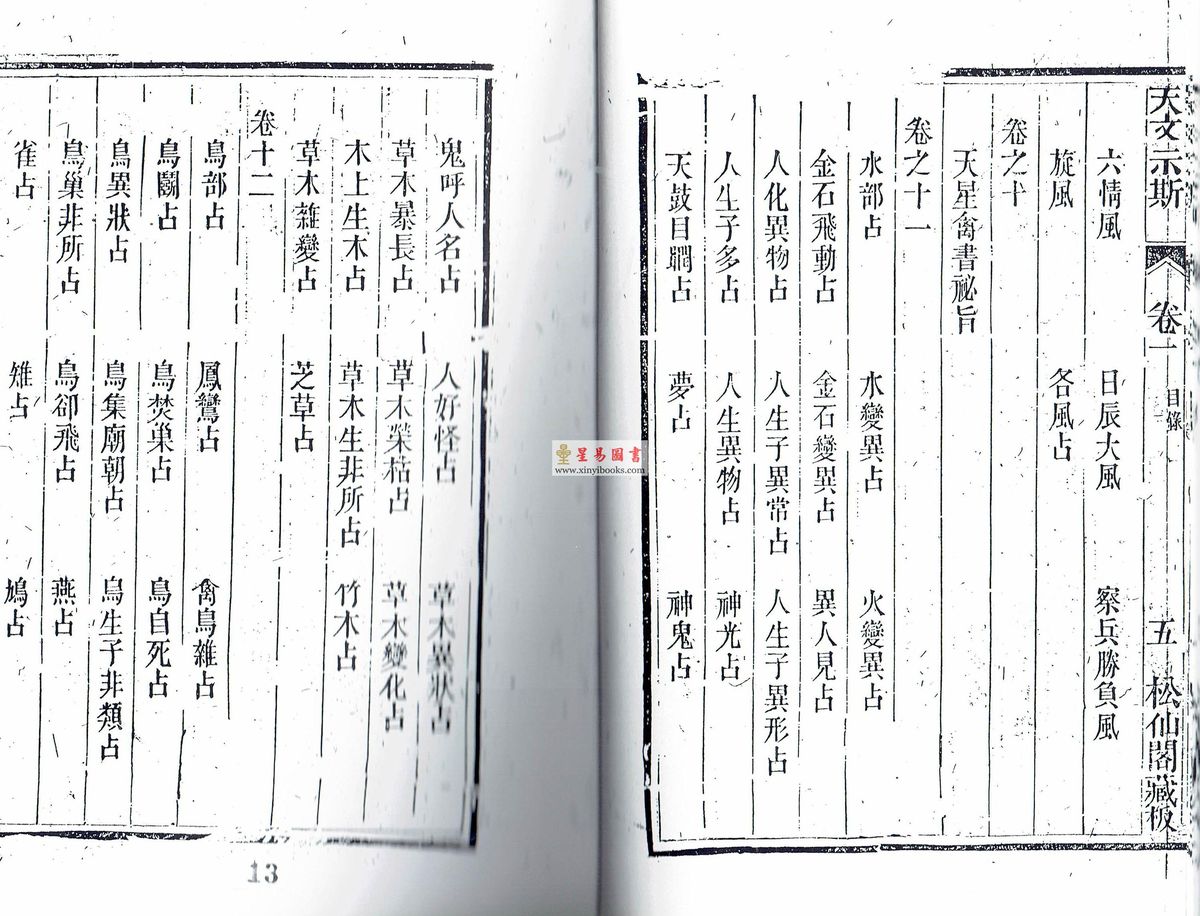 天文示斯 卷一 目錄 五 松仙閣藏板
六情風 日辰大風 察兵勝負風
旋風 各風占
卷之十
天星禽書祕旨
卷之十一
水部占 水變異占 火變異占
金石飛動占 金石變異占 異人見占
人化異物占 人生子異常占 人生子異形占
人生子多占 人生異物占 神光占
天鼓目瞤占 夢占 神鬼占
鬼呼人名占 人好怪占 草木異狀占
草木暴長占 草木榮枯占 草木變化占
木上生木占 草木生非所占 竹木占
草木雜變占 芝草占
卷十二
鳥部占 鳳鸞占 禽鳥雜占
鳥鬬占 鳥焚巢占 鳥自死占
鳥異狀占 鳥集廟朝占 鳥生子非類占
鳥巢非所占 鳥卻飛占 燕占
雀占 雉占 鳩占
13
星易圖書
www.xinyibooks.com